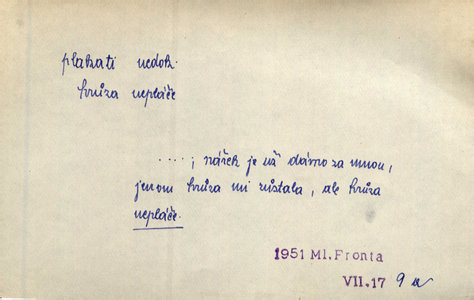 plakati nedok.
hrůza nepláče
....; nářek je už dávno za mnou,
jenom hrůza mi zůstala, ale hrůza
nepláče.
1951 Ml. Fronta
VII.17 9a